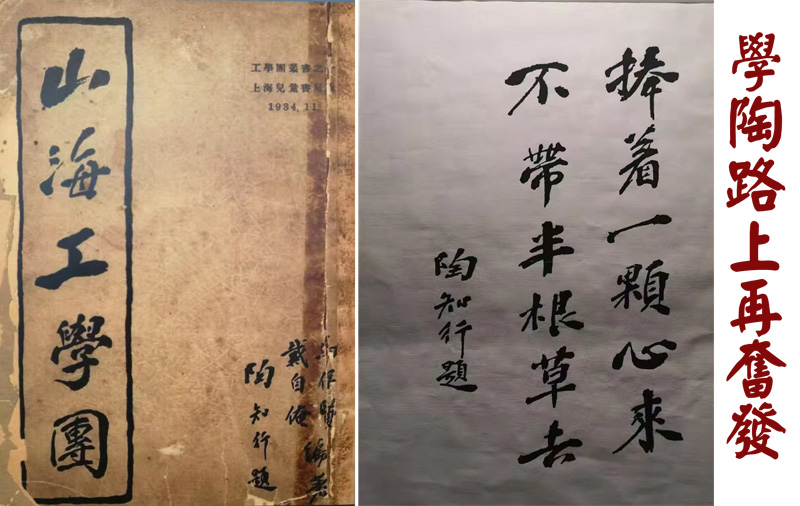 山海工學團
工學團叢書之
上海兒童書局
1934.11.
侶賢 編著
戴自俺
陶知行題
捧着一顆心來
不帶半根草去
陶知行題
學陶路上再奮發